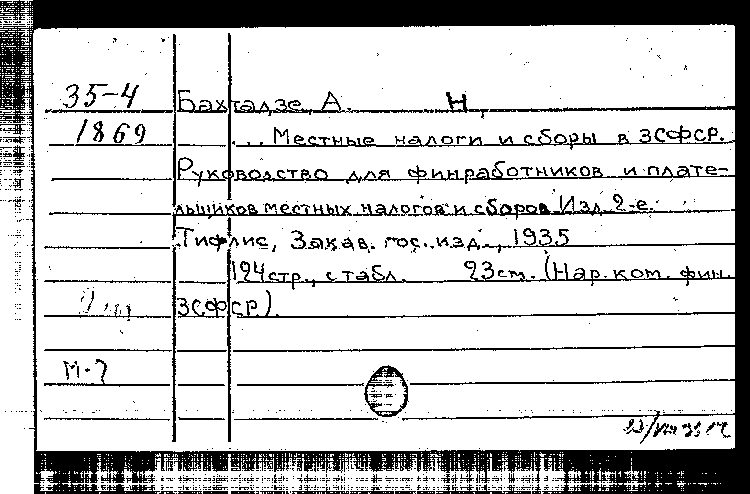 35-4 Бахтадзе, А. Н,
1869 ... Местные налоги и сборы в ЗСФСР.
Руководство для финработников и плате-
льщиков местных налогов и сборов. Изд. 2-е.
Тифлис, Закав. гос. изд., 1935
124стр., с табл. 23см. (Нар. ком. фин.
ЗСФСР).
М-7